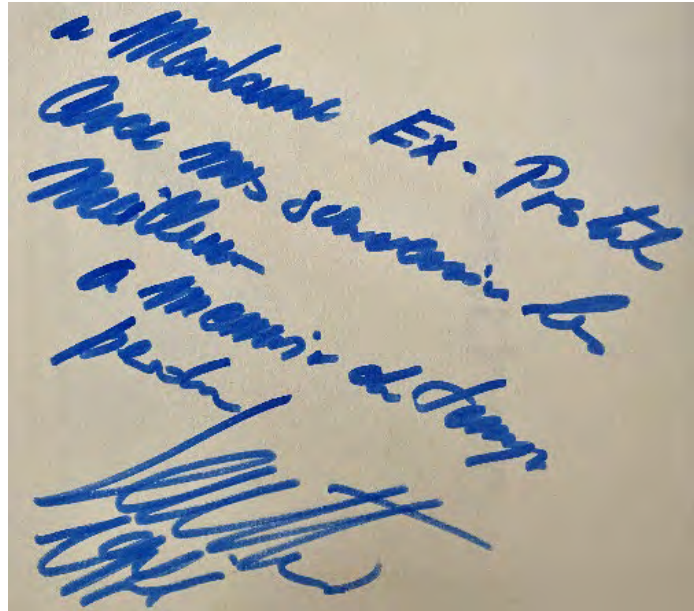 a Madame Ex. Prstel
Avec mes souvenirs les
meilleur
a memoir du temps
perdu